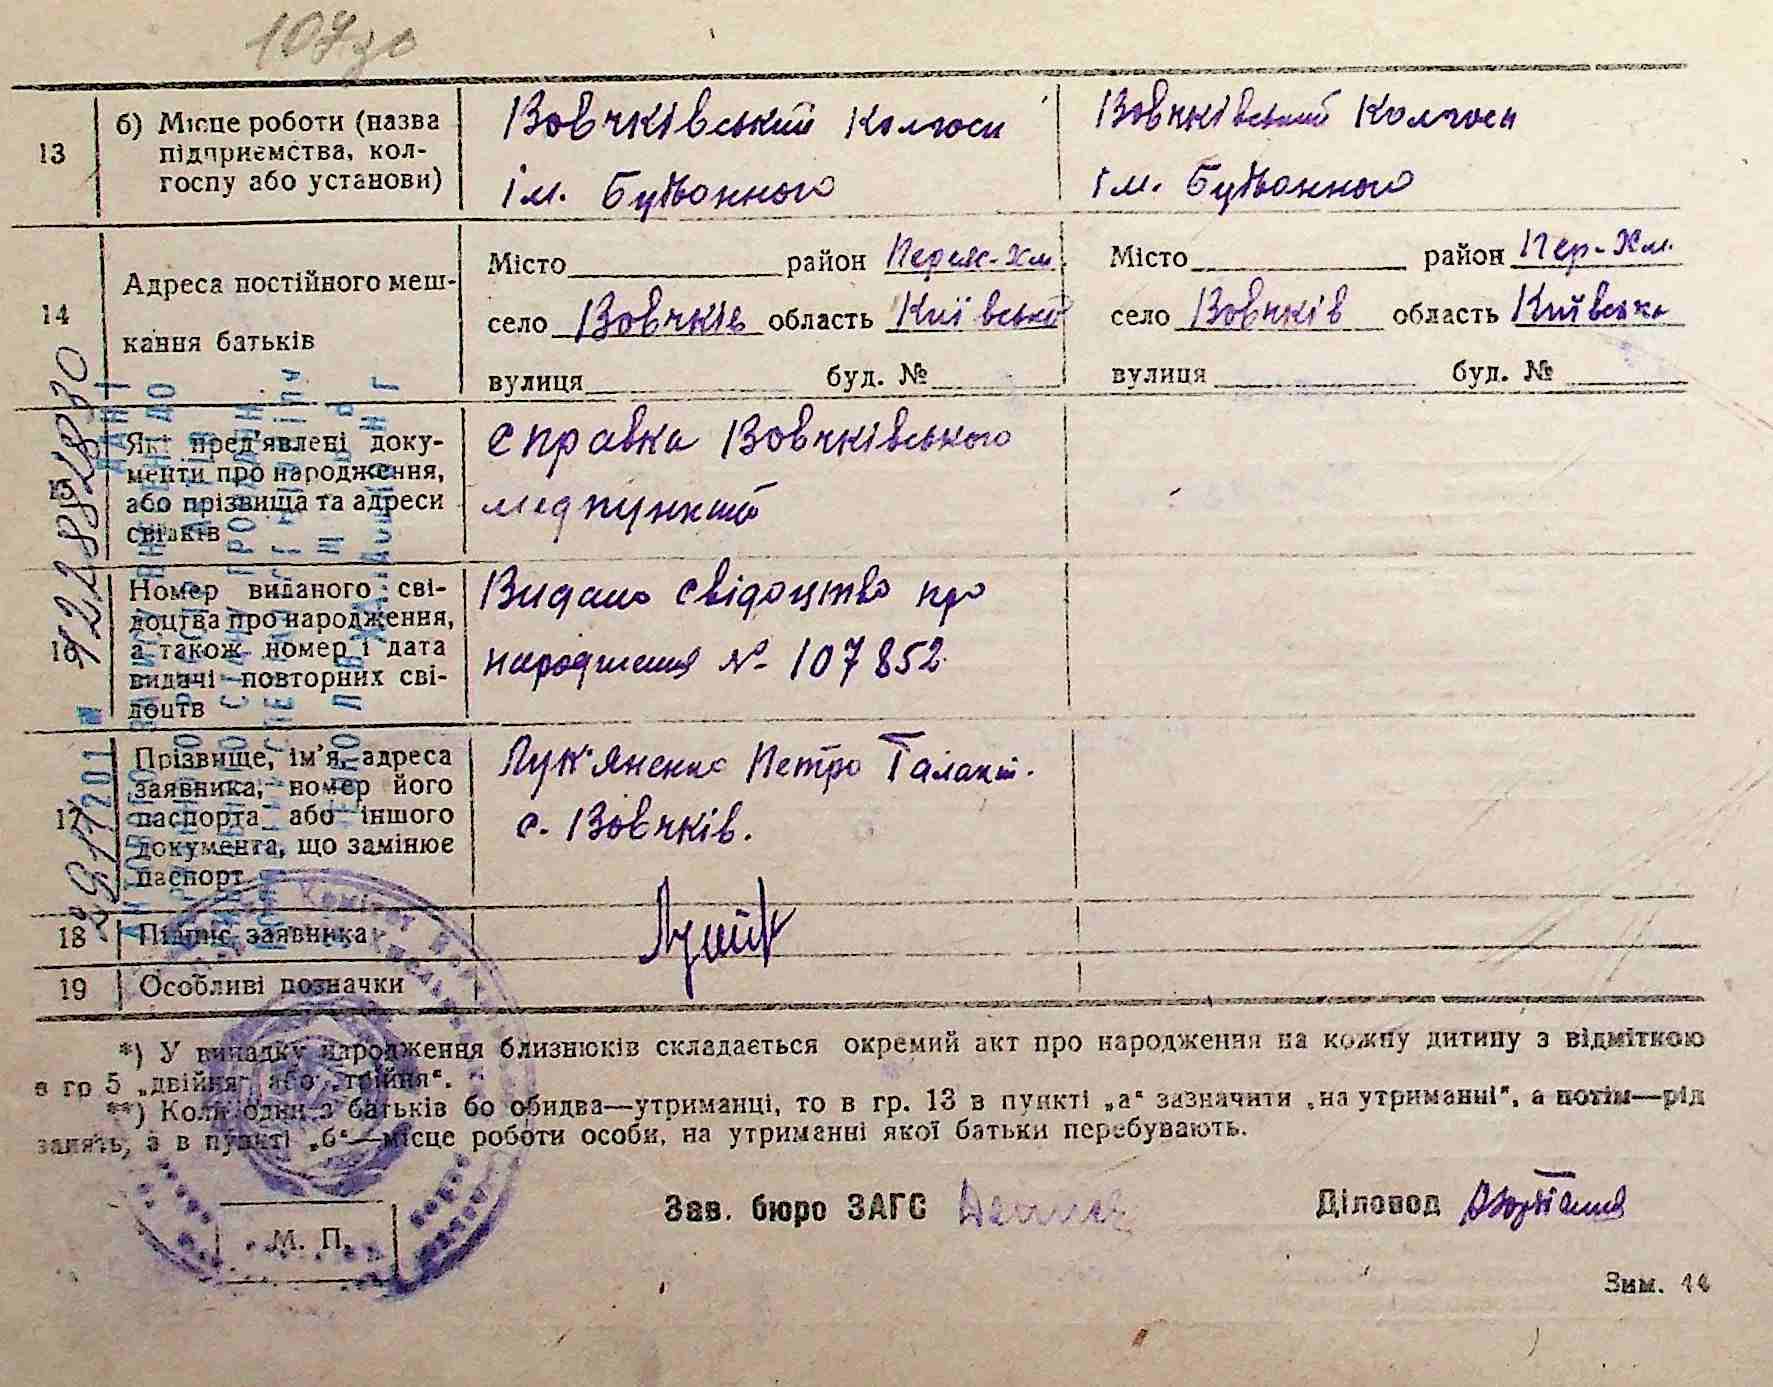 13
б) Місце роботи (назва підприємства, колгоспу або установи)
Вовчківський Колгосп
ім. Будьонного
Вовчківський Колгосп
ім. Будьонного
14
Адреса постійного меш-
кання батьків
Місто район Переяс-Хм.
село Вовчків область Київська
вулиця буд. №
Місто район Пер-Хм.
село Вовчків область Київська
вулиця буд. №
15
Які пред'явлені доку-
менти про народження,
або прізвища та адреси
свідків
справка Вовчківського
медпункта
16
Номер виданого сві-
доцтва про народження,
а також номер і дата
видачі повторних сві-
доцтв
Видано свідоцтво про
народження № 107852
17
Прізвище, ім'я, адреса
заявника, номер його
паспорта або іншого
документа, що замінює
паспорт
Лук'яненко Петро Галакт.
с. Вовчків.
18
Підпис заявника
19
Особливі позначки
*) У випадку народження близнюків складається окремий акт про народження на кожну дитину з відміткою
в гр 5 „двійня" або „трійня".
**) Коли один з батьків бо обидва—утриманці, то в гр. 13 в пункті „а" зазначити „на утриманні", а потім—рід
занять, а в пункті „б"—місце роботи особи, на утриманні якої батьки перебувають.
М. П.
Зав. бюро ЗАГС
Діловод